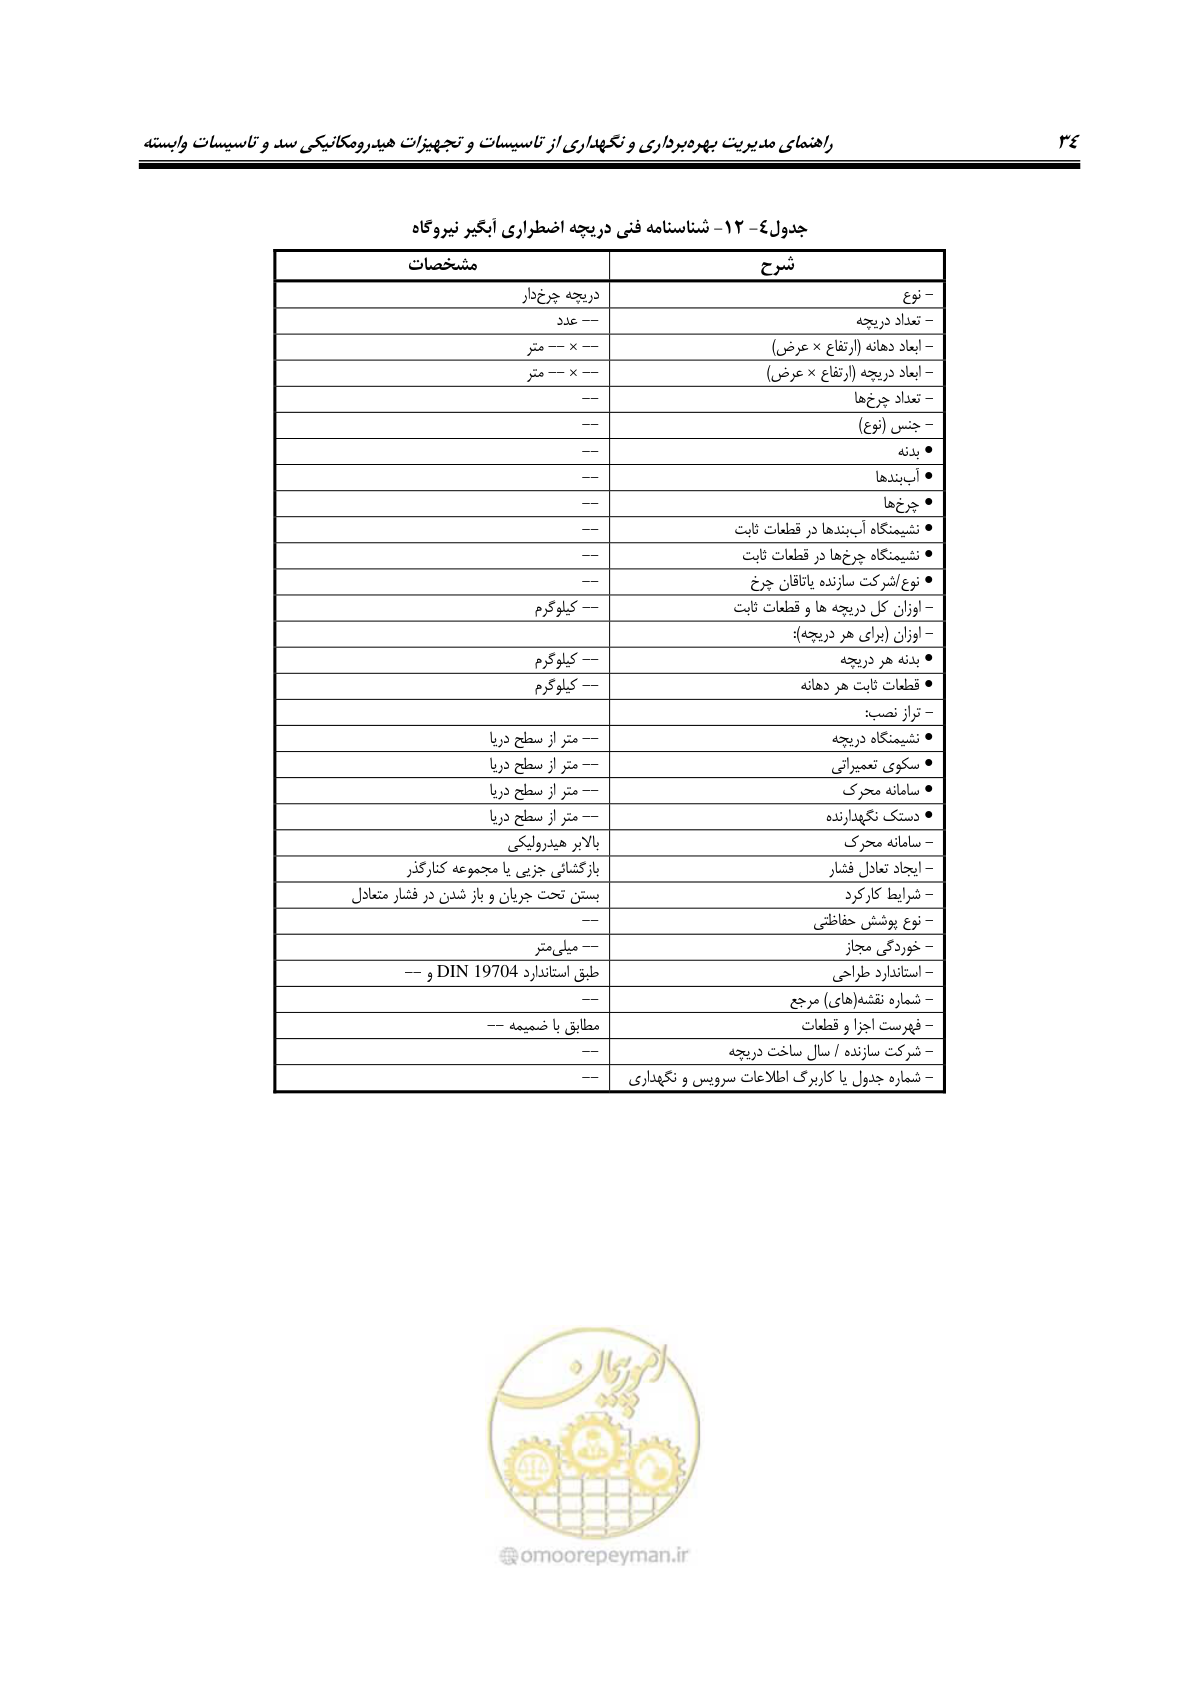 ۳٤ راهنمای مدیریت بهره‌برداری و نگهداری از تاسیسات و تجهیزات هیدرومکانیکی سد و تاسیسات وابسته
جدول٤- ۱۲- شناسنامه فنی دریچه اضطراری آبگیر نیروگاه
شرح مشخصات
- نوع دریچه چرخ‌دار
- تعداد دریچه -- عدد
- ابعاد دهانه (ارتفاع × عرض) -- × -- متر
- ابعاد دریچه (ارتفاع × عرض) -- × -- متر
- تعداد چرخ‌ها --
- جنس (نوع) --
• بدنه --
• آب‌بندها --
• چرخ‌ها --
• نشیمنگاه آب‌بندها در قطعات ثابت --
• نشیمنگاه چرخ‌ها در قطعات ثابت --
• نوع/شرکت سازنده یاتاقان چرخ --
- اوزان کل دریچه ها و قطعات ثابت -- کیلوگرم
- اوزان (برای هر دریچه):
• بدنه هر دریچه -- کیلوگرم
• قطعات ثابت هر دهانه -- کیلوگرم
- تراز نصب:
• نشیمنگاه دریچه -- متر از سطح دریا
• سکوی تعمیراتی -- متر از سطح دریا
• سامانه محرک -- متر از سطح دریا
• دستک نگهدارنده -- متر از سطح دریا
- سامانه محرک بالابر هیدرولیکی
- ایجاد تعادل فشار بازگشائی جزیی یا مجموعه کنارگذر
- شرایط کارکرد بستن تحت جریان و باز شدن در فشار متعادل
- نوع پوشش حفاظتی --
- خوردگی مجاز -- میلی‌متر
- استاندارد طراحی طبق استاندارد DIN 19704 و --
- شماره نقشه(های) مرجع --
- فهرست اجزا و قطعات مطابق با ضمیمه --
- شرکت سازنده / سال ساخت دریچه --
- شماره جدول یا کاربرگ اطلاعات سرویس و نگهداری --
امور پیمان
@omoorepeyman.ir